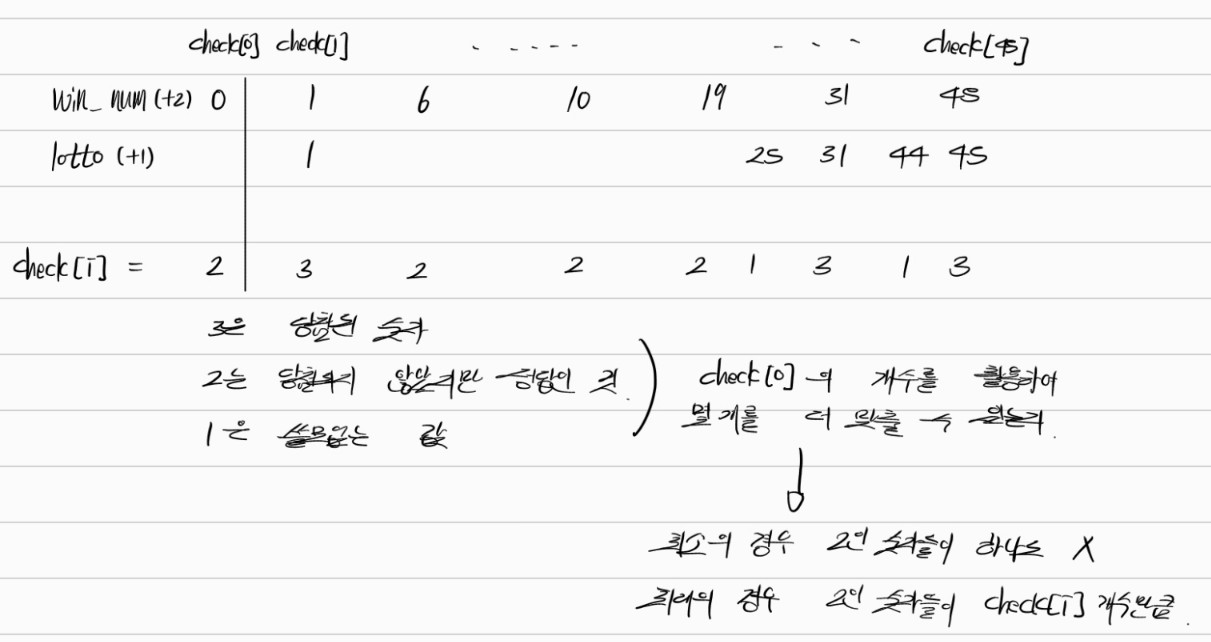 check[0] check[1] . . . . . - - - check[45]
win_num (+2) 0 1 6 10 19 31 45
lotto (+1) 1 25 31 44 45
check[i] = 2 3 2 2 2 1 3 1 3
3은 당첨된 숫자
2는 당첨되지 않았지만 정답인 것.
1은 쓸모없는 값
check[0]의 개수를 활용하여
몇 개를 더 맞출 수 있는가.
최소의 경우 2인 숫자들이 하나도 X
최대의 경우 2인 숫자들이 check[i] 개수만큼.